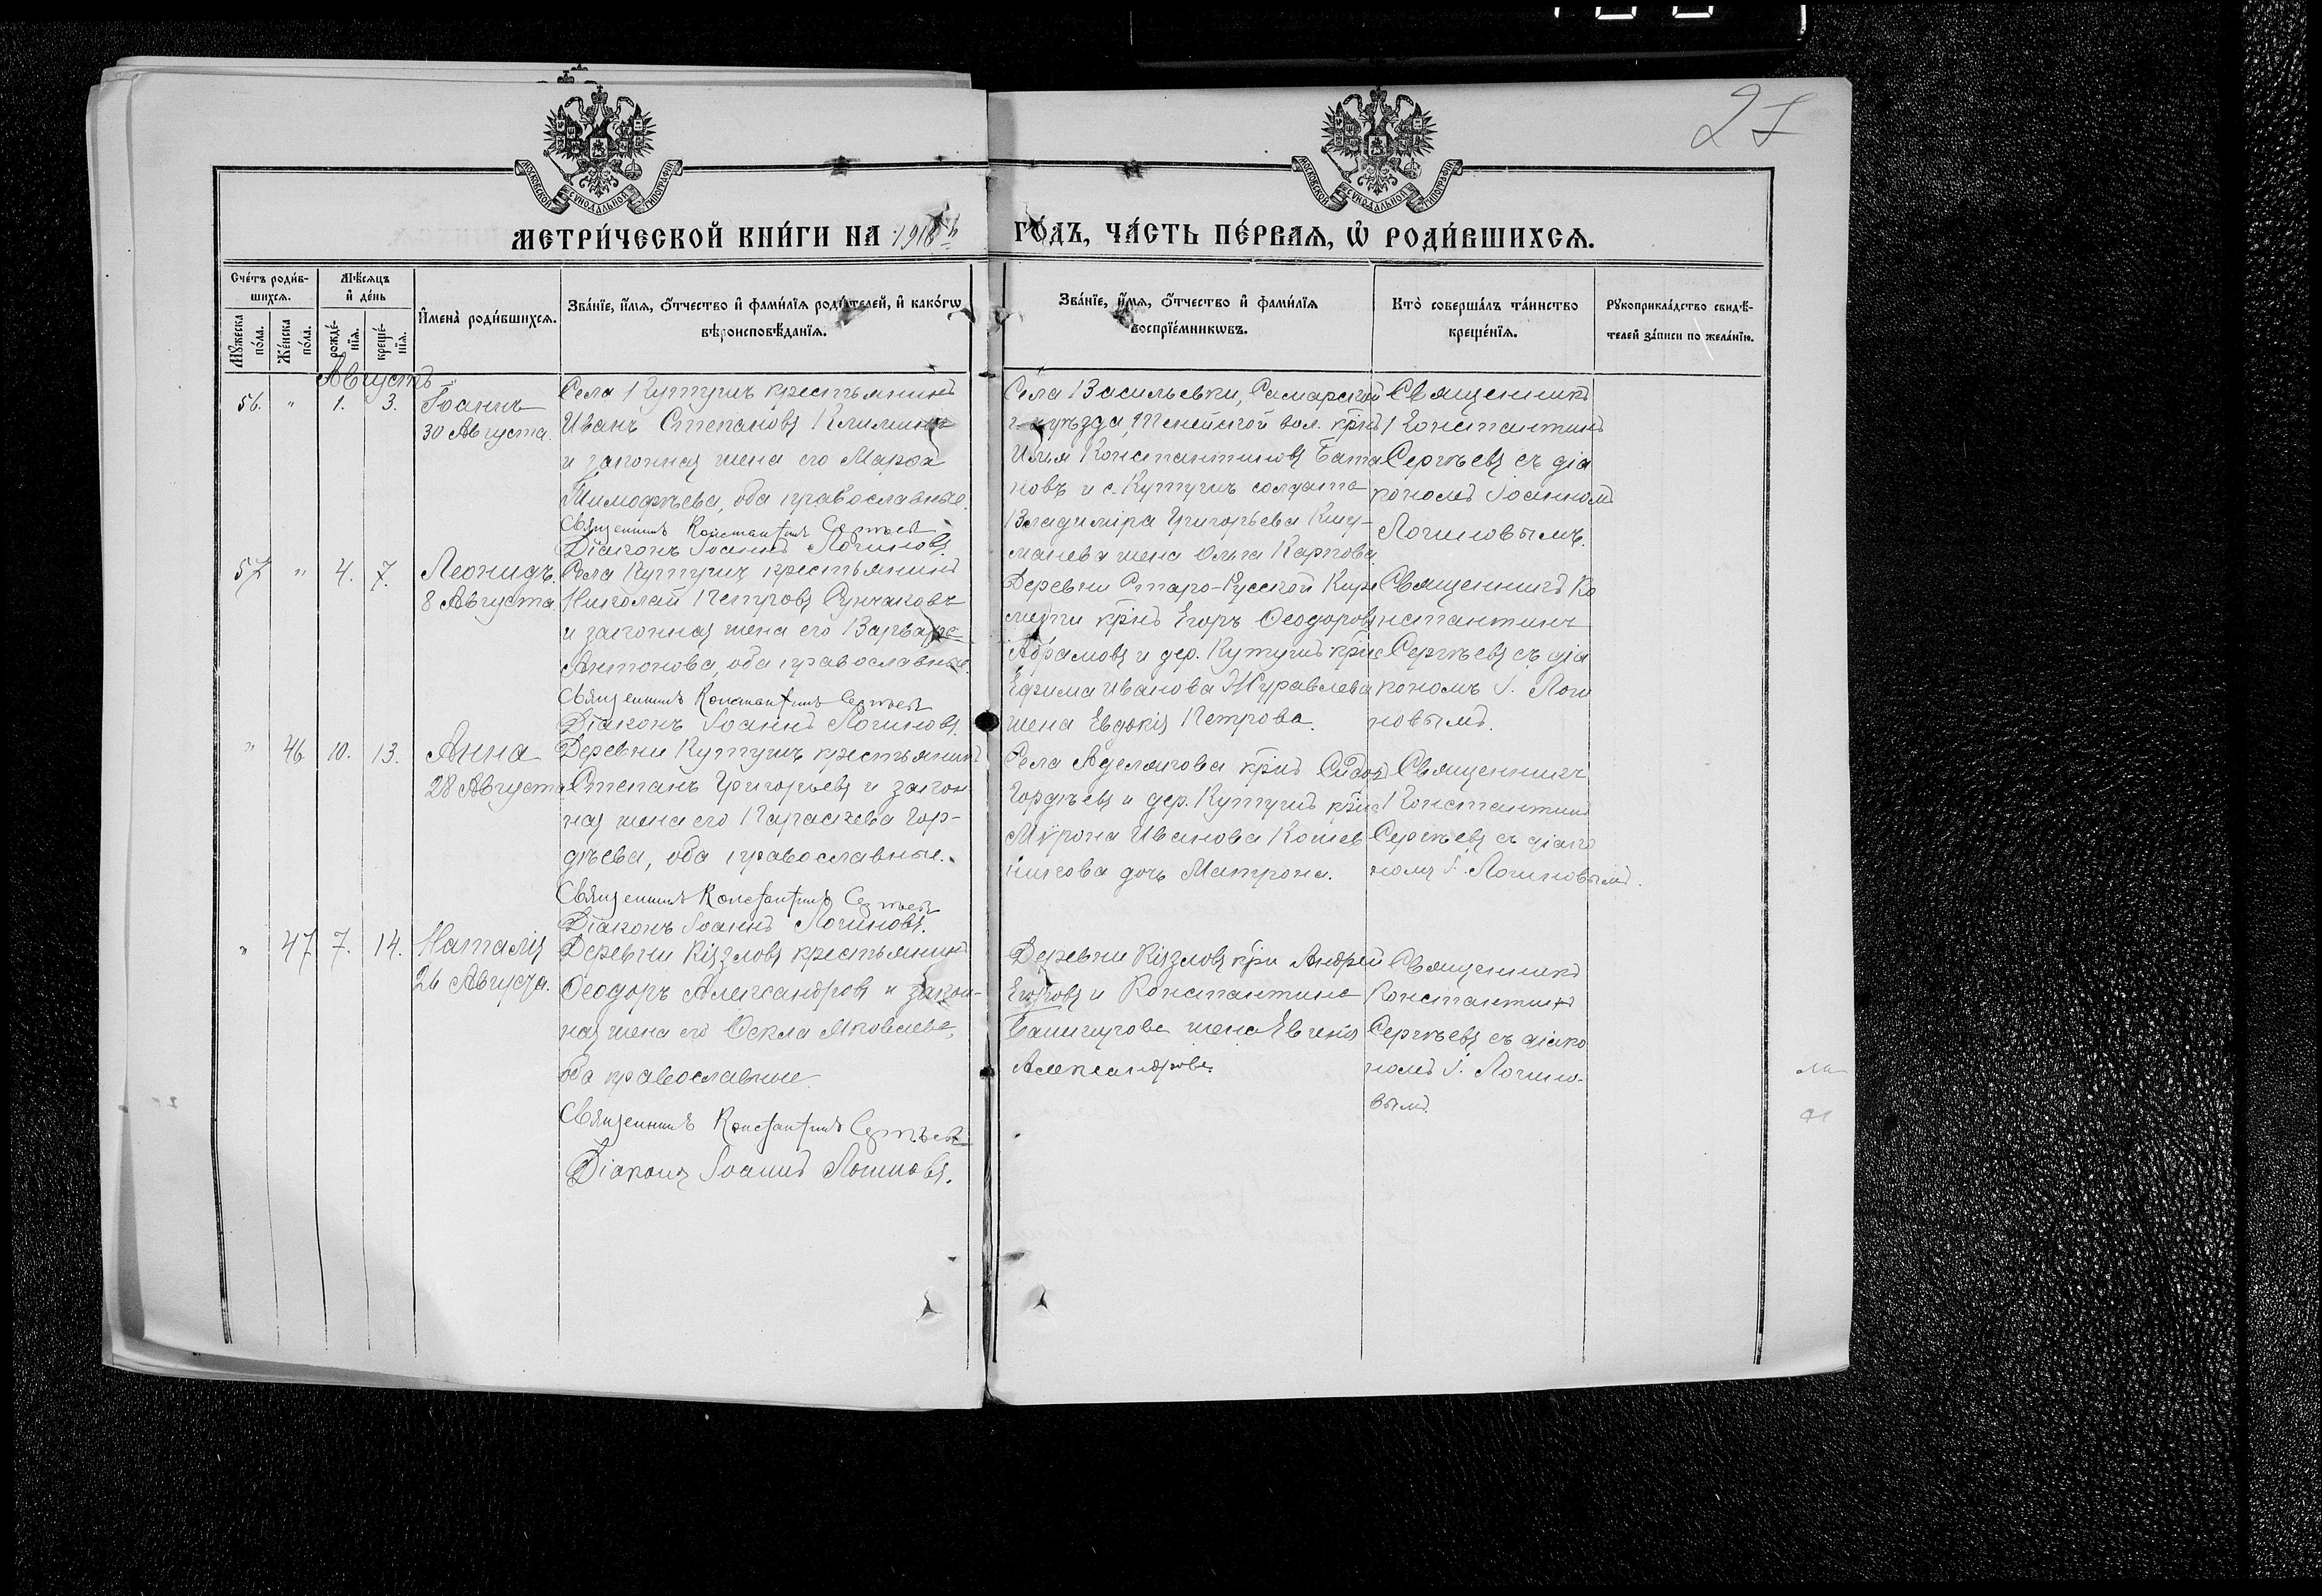 27
МОСКОВСКОЙ СѴНОДАЛЬНОЙ ТИПОГРАФІИ
МОСКОВСКОЙ СѴНОДАЛЬНОЙ ТИПОГРАФІИ
МЕТРИ́ЧЕСКОЙ КНИ́ГИ НА
ГО́ДЪ, ЧА́СТЬ ПЕ́РВАЯ, Ѡ РОДИ́ВШИХСЯ.
Сче́тъ роди́в-
шихся.
Мѣ́сяцъ
и҆ де́нь
Мꙋ́жеска по́ла.
Же́нска по́ла.
рожде́-
нїя.
креще́-
нїя.
И҆мена̀ роди́вшихся.
Зва́нїе, и҆́мя, ѻ҆́тчество и҆ фами́лїя роди́телей, и҆ како́гѡ
вѣроисповѣ́данїя.
Зва́нїе, и҆́мя, ѻ҆́тчество и҆ фами́лїя
воспрїе́мникѡвъ.
Кто̀ соверша́лъ та́инство
креще́нїя.
Рꙋкоприкла́дство свидѣ́-
телей за́писи по жела́нїю.
Августъ
56. " 1. 3. Іоаннъ
30 Августа.
Села Кутушъ крестьянинъ
Иванъ Степановъ
и законная жена его Марѳа
Тимофѣева, оба православные.
Священникъ Константинъ Сергѣевъ
Діаконъ Іоаннъ Логиновъ.
Села Васильевки, Самарской
г. и уѣзда, вол. крнъ
Илья Константиновъ Бата
новъ и с. Кутушъ солдата
Владиміра Григорьева
жена Ольга Карпова.
Священникъ
Константинъ
Сергѣевъ съ діа
кономъ Іоанномъ
Логиновымъ.
57 " 4. 7. Леонидъ.
8 Августа.
Села Кутушъ крестьянинъ
Николай Петровъ
и законная жена его Варвара
Антонова, оба православные.
Священникъ Константинъ Сергѣевъ
Діаконъ Іоаннъ Логиновъ.
Деревни Старо-Русской Кире
мети крнъ Егоръ Ѳеодоровъ
Абрамовъ и дер. Кутушъ крна
Ефима Иванова Журавлева
жена Евдокія Петрова.
Священникъ Ко
нстантинъ
Сергѣевъ съ діа
кономъ І. Логи
новымъ.
" 46 10. 13. Анна
28 Августа
Деревни Кутушъ крестьянинъ
Степанъ Григорьевъ и закон
ная жена его Параскева Гор-
дѣева, оба православные.
Священникъ Константинъ Сергѣевъ
Діаконъ Іоаннъ Логиновъ.
Села Аделякова крнъ
Гордѣевъ и дер. Кутушъ крна
Мѵрона Иванова Котев
никова дочь Матрона.
Священникъ
Константинъ
Сергѣевъ съ діако
номъ І. Логиновымъ.
" 47 7. 14. Наталія
26 Августа.
Деревни крестьянинъ
Ѳеодоръ Александровъ и закон-
ная жена его Ѳекла Яковлева,
оба православные.
Священникъ Константинъ Сергѣевъ
Діаконъ Іоаннъ Логиновъ.
Деревни крн Андрей
Егоровъ и Константина
Башмурова жена Евгенія
Александрова.
Священникъ
Константинъ
Сергѣевъ съ діако
номъ І. Логино-
вымъ.